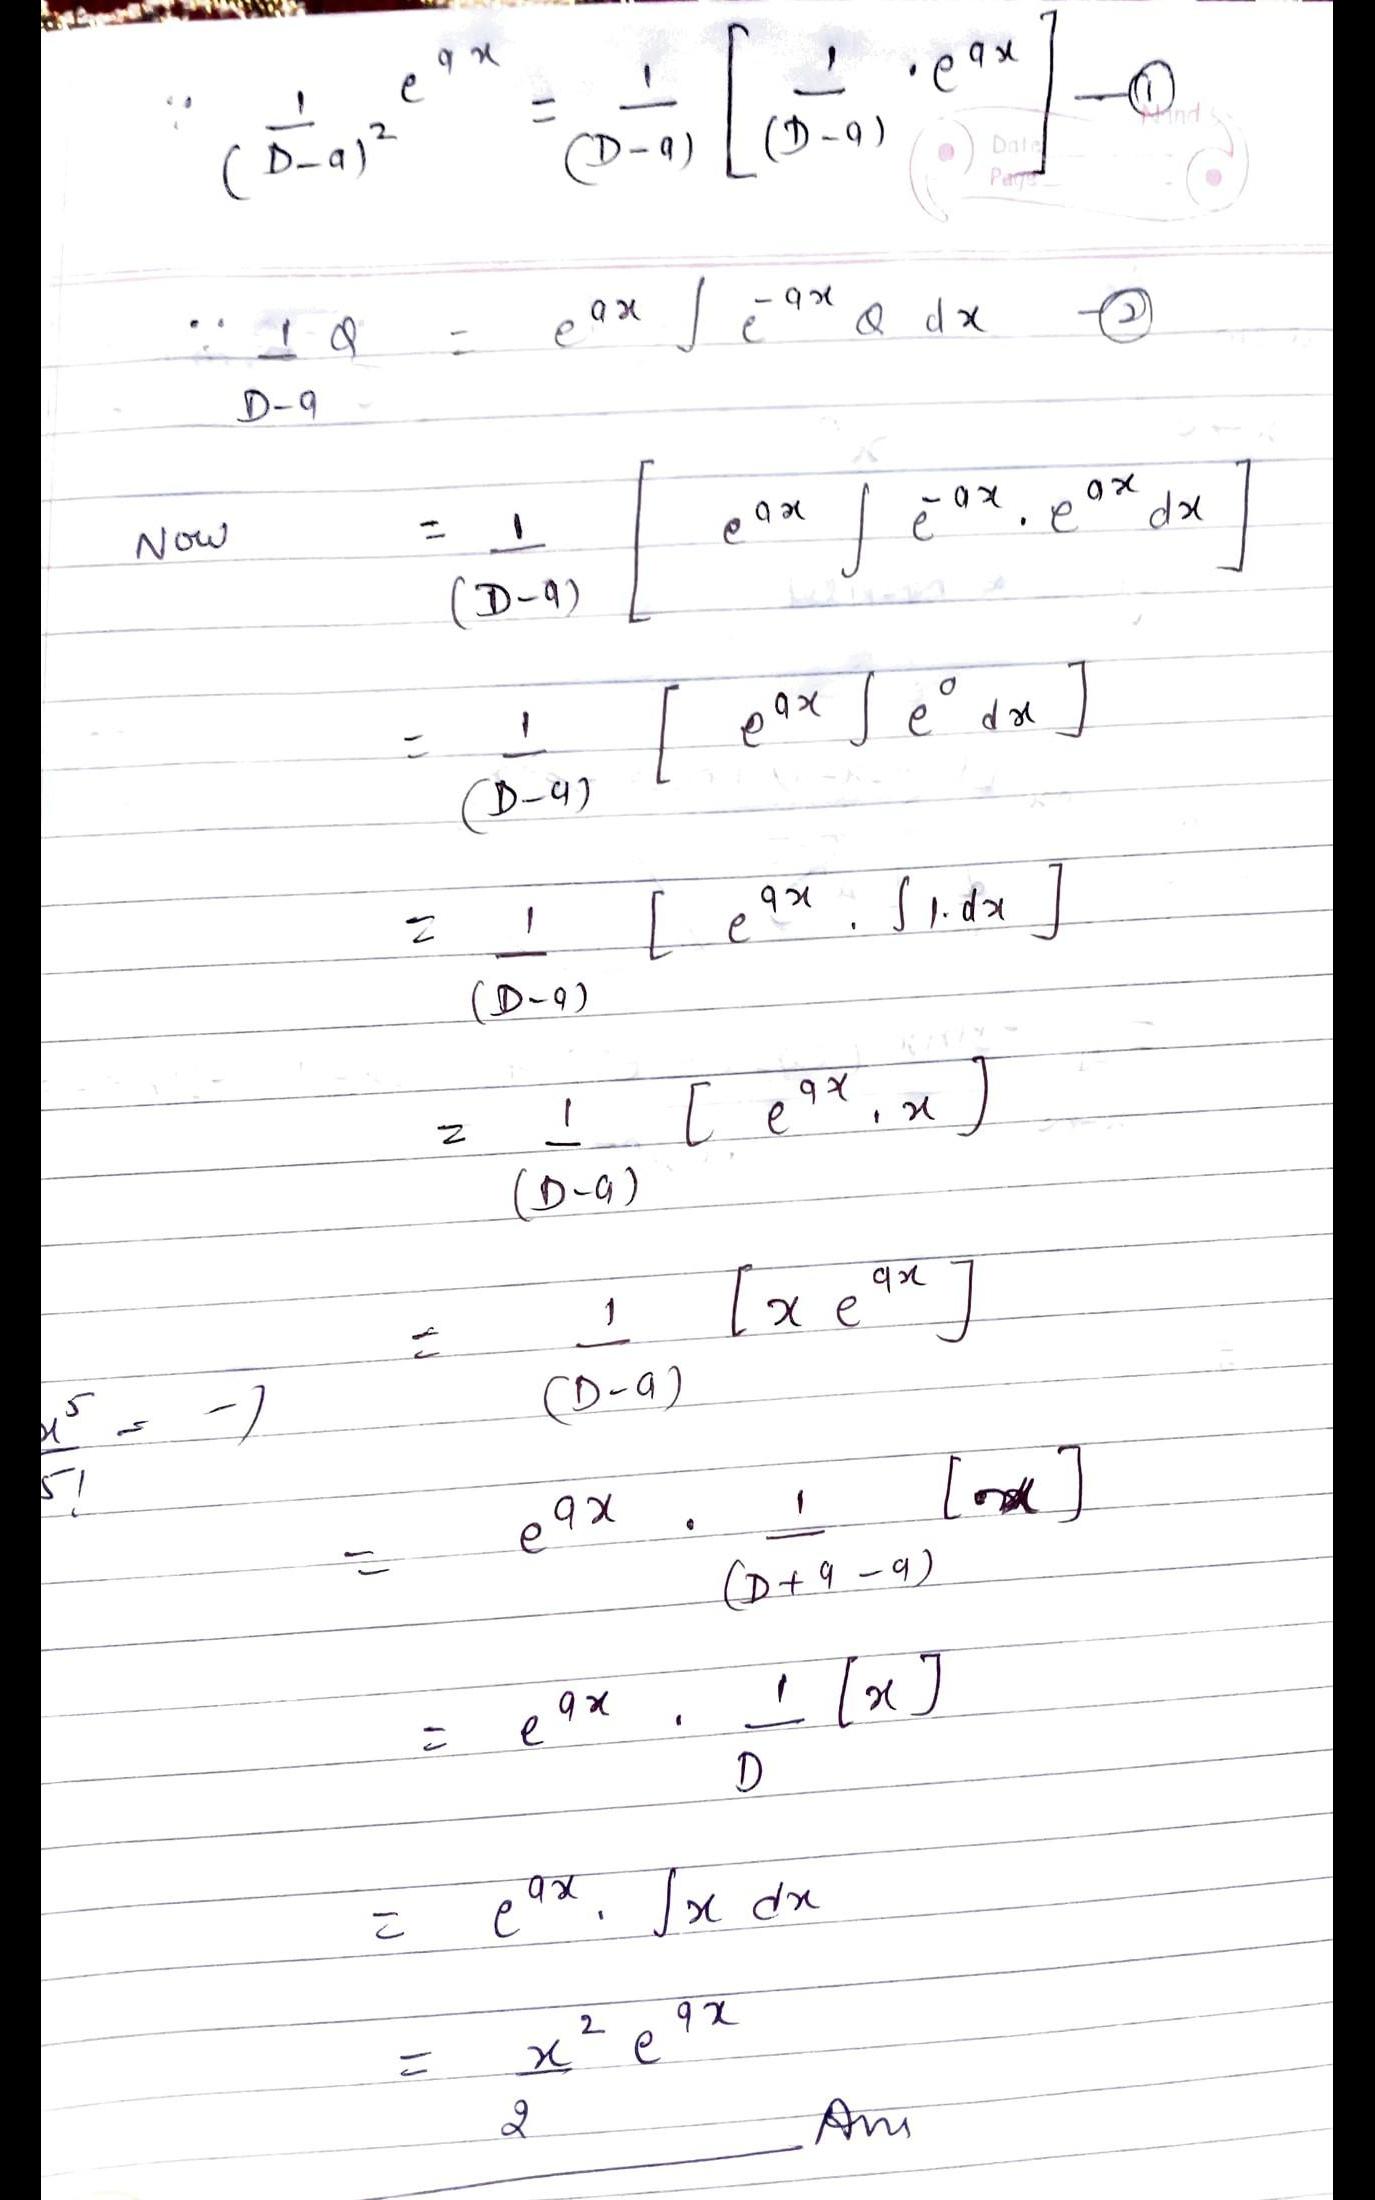 ∵ 1/(D-a)² e^{ax} = 1/(D-a) [ 1/(D-a) · e^{ax} ] — ①
Date
Page
∵ 1/(D-a) Q = e^{ax} ∫ e^{-ax} Q dx — ②
Now = 1/(D-a) [ e^{ax} ∫ e^{-ax} . e^{ax} dx ]
= 1/(D-a) [ e^{ax} ∫ e^0 dx ]
= 1/(D-a) [ e^{ax} . ∫ 1. dx ]
= 1/(D-a) [ e^{ax} . x ]
= 1/(D-a) [ x e^{ax} ]
x⁵/5! = -)
= e^{ax} . 1/(D+a-a) [x]
= e^{ax} . 1/D [x]
= e^{ax} . ∫ x dx
= x²/2 e^{ax}
Ans